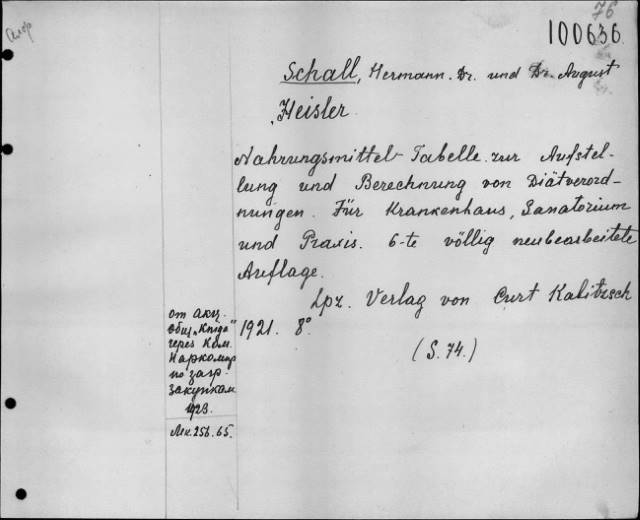 76
100636.
Schall, Hermann. Dr. und Dr. August
Heisler.
Nahrungsmittel-Tabelle zur Aufstel-
lung und Berechnung von Diätverord-
nungen. Für Krankenhaus, Sanatorium
und Praxis. 6-te völlig neubearbeitete
Auflage.
Lpz. Verlag von Curt Kabitzsch
1921. 8°
(S. 74.)
от акц.
общ. „Книга"
через Ком.
Наркомпр
по загр.
закупкам
1923.
256.65.